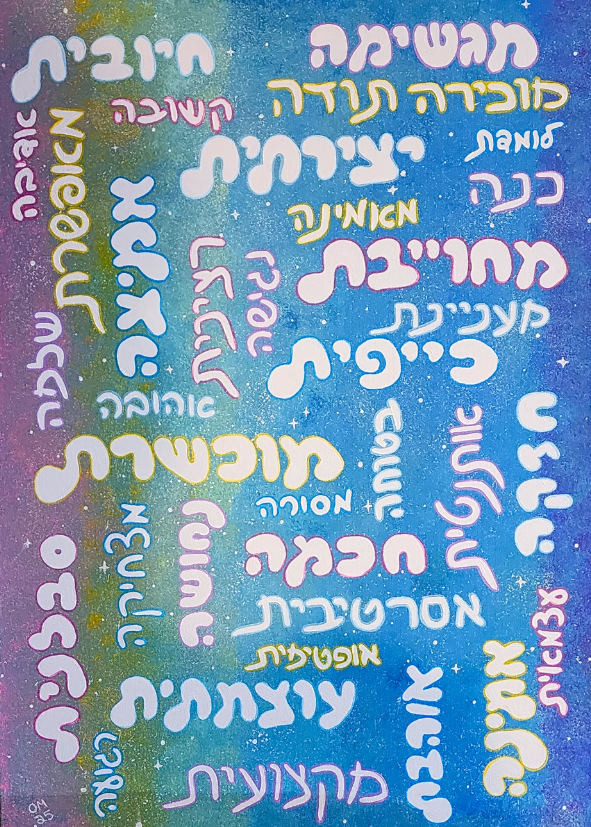 מגשימה
חיובית
מוכירה תודה
קשובה
אדיבה
מאפשרת
לומדת
יצירתית
כנה
אמיצה
מאמינה
רצינית
נגישה
מחוייבת
מעניינת
שלמה
כייפית
אהובה
בטוחה
אותנטית
חזקה
מוכשרת
מסורה
מצחיקה
נחושה
חכמה
סבלנית
אסרטיבית
עצמאית
אופטימית
אמינה
עוצמתית
אוהבת
רגועה
מקצועית
OM
25